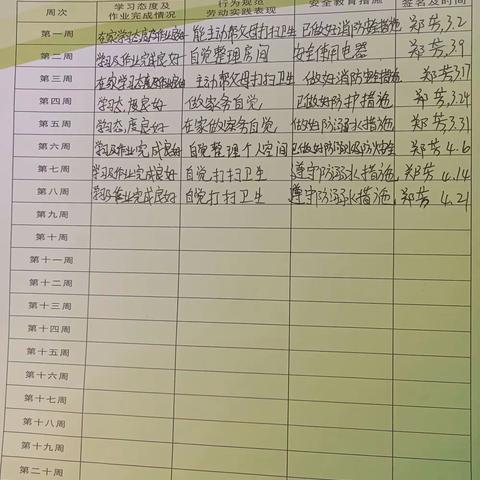 周次 学习态度及作业完成情况 行为规范劳动实践表现 安全教育措施 签名及时间
第一周 在家学习态度及作业良好 能主动帮父母打扫卫生 已做好消防安全措施 郑芳 3.2
第二周 学习及作业完成良好 自觉整理房间 安全使用电器 郑芳 3.9
第三周 在家学习态度及作业良好 主动帮父母打扫卫生 做好消防安全措施 郑芳 3.17
第四周 学习态度良好 做家务自觉 已做好防护措施 郑芳 3.24
第五周 学习态度良好 在家做家务自觉 做好防溺水措施 郑芳 3.31
第六周 学习及作业完成良好 自觉整理个人空间 已做好防溺水防火安全 郑芳 4.6
第七周 学习及作业完成良好 自觉打扫卫生 遵守防溺水措施 郑芳 4.14
第八周 学习及作业完成良好 自觉打扫卫生 遵守防溺水措施 郑芳 4.21
第九周
第十周
第十一周
第十二周
第十三周
第十四周
第十五周
第十六周
第十七周
第十八周
第十九周
第二十周